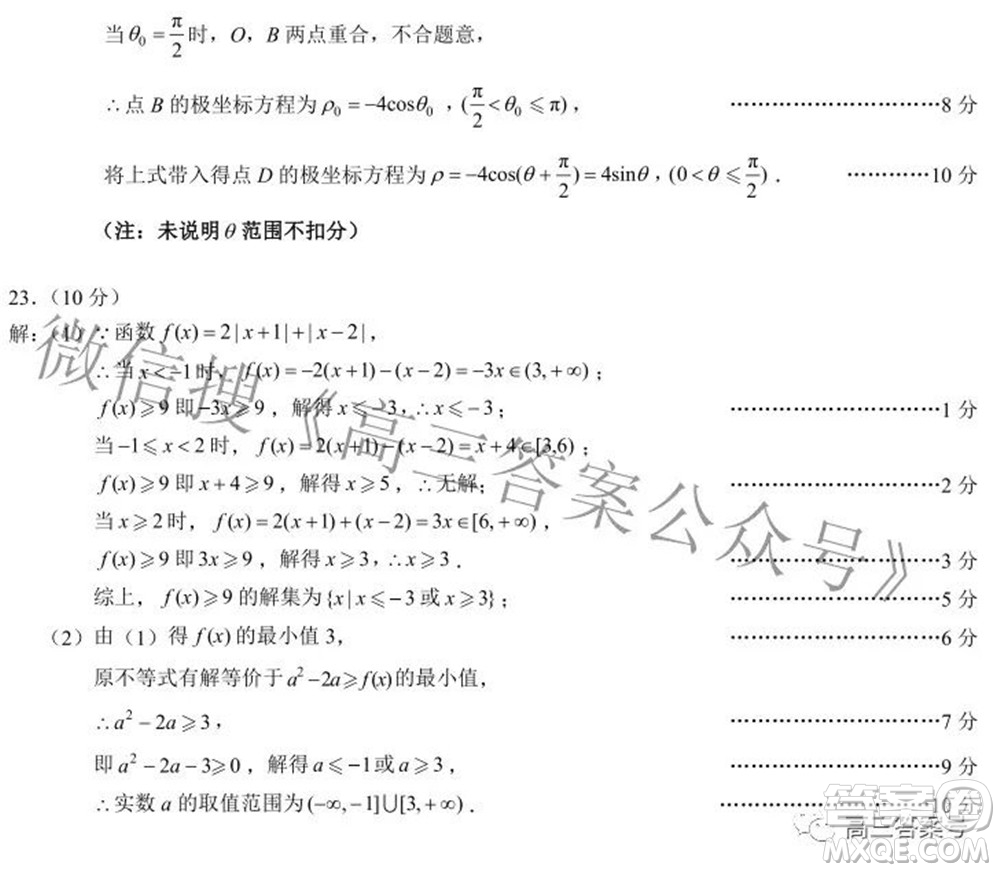 当θ₀=π/2时，O，B 两点重合，不合题意，
∴点 B 的极坐标方程为ρ₀=−4cosθ₀ ，(π/2<θ₀⩽π)， …………………………8 分
将上式带入得点 D 的极坐标方程为ρ=−4cos(θ+π/2)=4sinθ，(0<θ⩽π/2)． …………10 分
（注：未说明θ范围不扣分）
23．（10 分）
解：（1）∵函数 f(x)=2|x+1|+|x−2|，
∴当 x<−1时，f(x)=−2(x+1)−(x−2)=−3x∈(3,+∞)；
f(x)⩾9 即−3x⩾9 ，解得 x⩽−3，∴x⩽−3； …………………………1 分
当−1⩽x<2 时，f(x)=2(x+1)−(x−2)=x+4∈[3,6)；
f(x)⩾9 即 x+4⩾9 ，解得 x⩾5 ，∴无解； …………………………2 分
当 x⩾2 时，f(x)=2(x+1)+(x−2)=3x∈[6,+∞)，
f(x)⩾9 即 3x⩾9 ，解得 x⩾3 ，∴x⩾3． …………………………3 分
综上，f(x)⩾9 的解集为{x|x⩽−3 或 x⩾3}； …………………………5 分
（2）由（1）得 f(x) 的最小值 3， …………………………6 分
原不等式有解等价于 a²−2a⩾f(x) 的最小值，
∴a²−2a⩾3， …………………………7 分
即 a²−2a−3⩾0 ，解得 a⩽−1或 a⩾3， …………………………9 分
∴实数 a 的取值范围为 (−∞,−1]∪[3,+∞)． …………………………10 分
微信搜《高三答案公众号》
高三答案号
答案圈
MXQE.COM